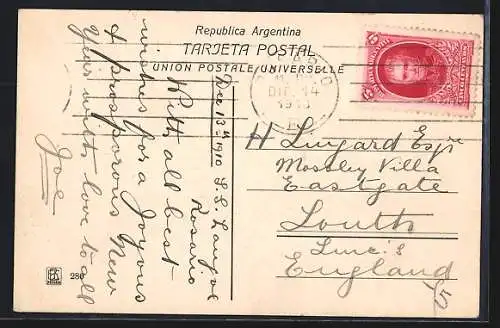 Republica Argentina
TARJETA POSTAL
UNION POSTALE UNIVERSELLE
DIC. 14
Dec 13th 1910 S.S.
Rosario
With all best
wishes for a Joyous
& prosperous New
Year with love to all
Joe
286
H Lingard Esqre
Mossley Villa
Eastgate
Louth
Linc's
England